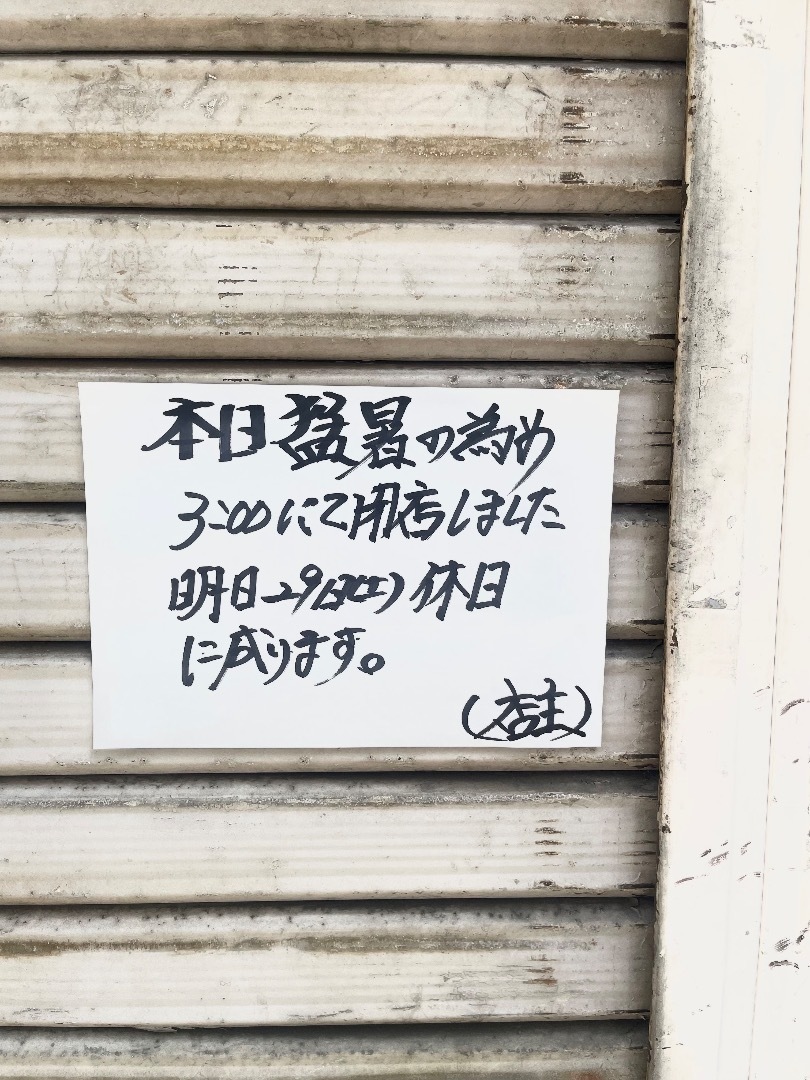 本日猛暑の為め
3:00にて閉店しました
明日29日(土)休日
に成ります。
(店主)